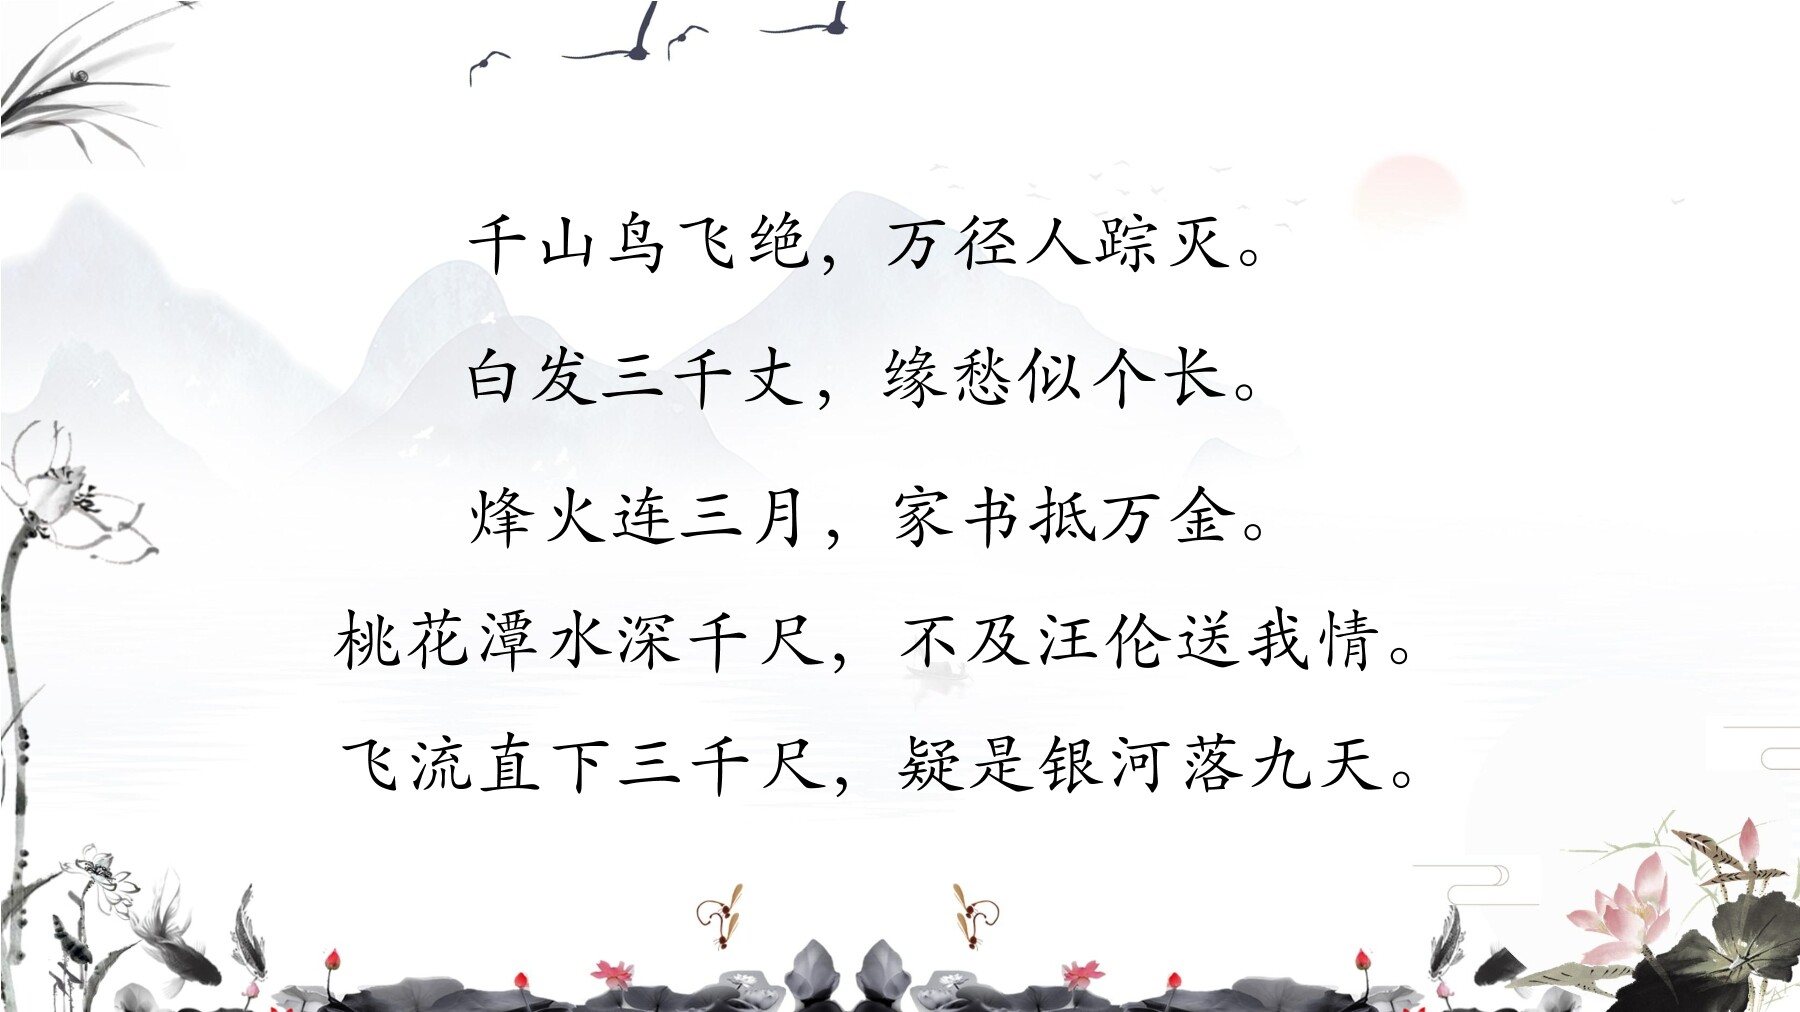 千山鸟飞绝，万径人踪灭。
白发三千丈，缘愁似个长。
烽火连三月，家书抵万金。
桃花潭水深千尺，不及汪伦送我情。
飞流直下三千尺，疑是银河落九天。